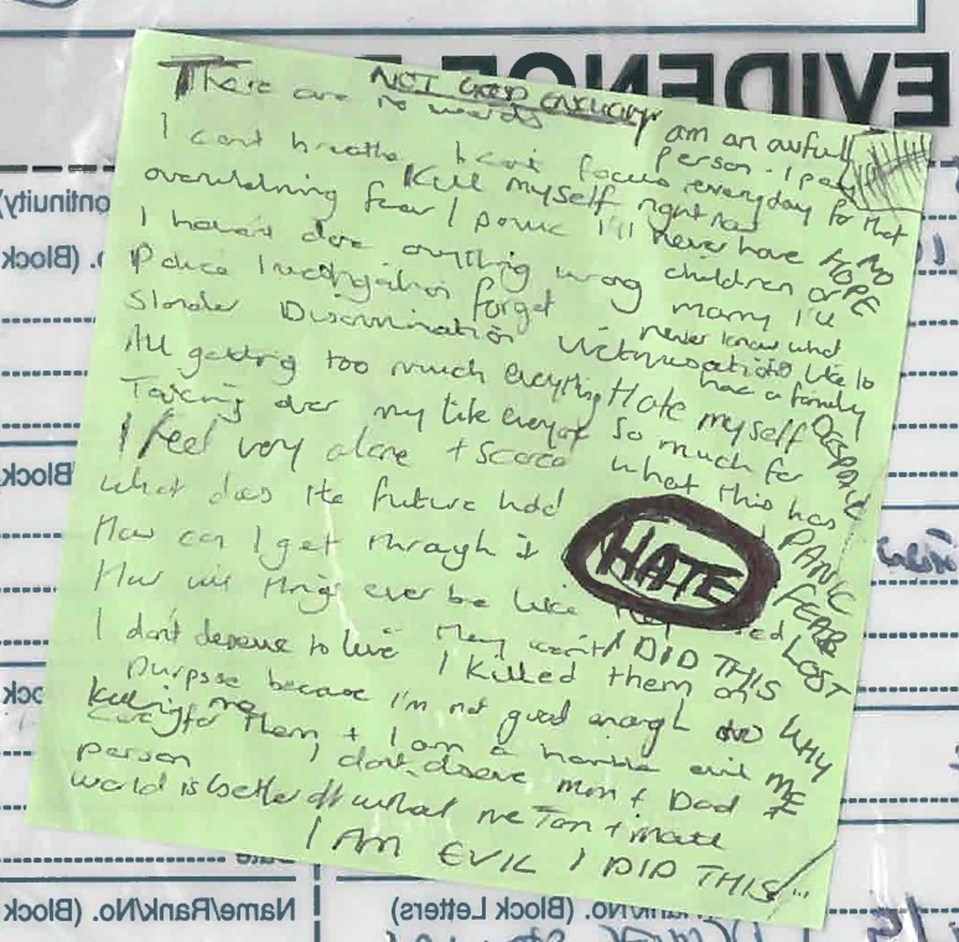 EVIDENCE
NOT GOOD ENOUGH
There are no words
I am an awful
person. I pay
everyday for that
I can't breathe I can't focus
Kill myself right now
overwhelming fear / panic
I'll never have
children or
marry I'll
never know what
like to
have a family
NO
HOPE
I haven't done anything wrong
Police Investigation forget
Slander Discrimination victimisation
All getting too much everything
Hate myself
so much for
what this has
Taking over my life everyday
DESPAIR
PANIC
FEAR
LOST
I feel very alone + scared
what does the future hold
How can I get through it
HATE
How will things ever be like
I don't deserve to live
They went
I DID THIS
I killed them on
purpose because I'm not good enough to
WHY
ME
killing me
care for them, + I am a horrible evil
person
I don't deserve mum + Dad
world is better off without me
I AM EVIL I DID THIS
Name/Rank/No. (Block
(Block Letters)